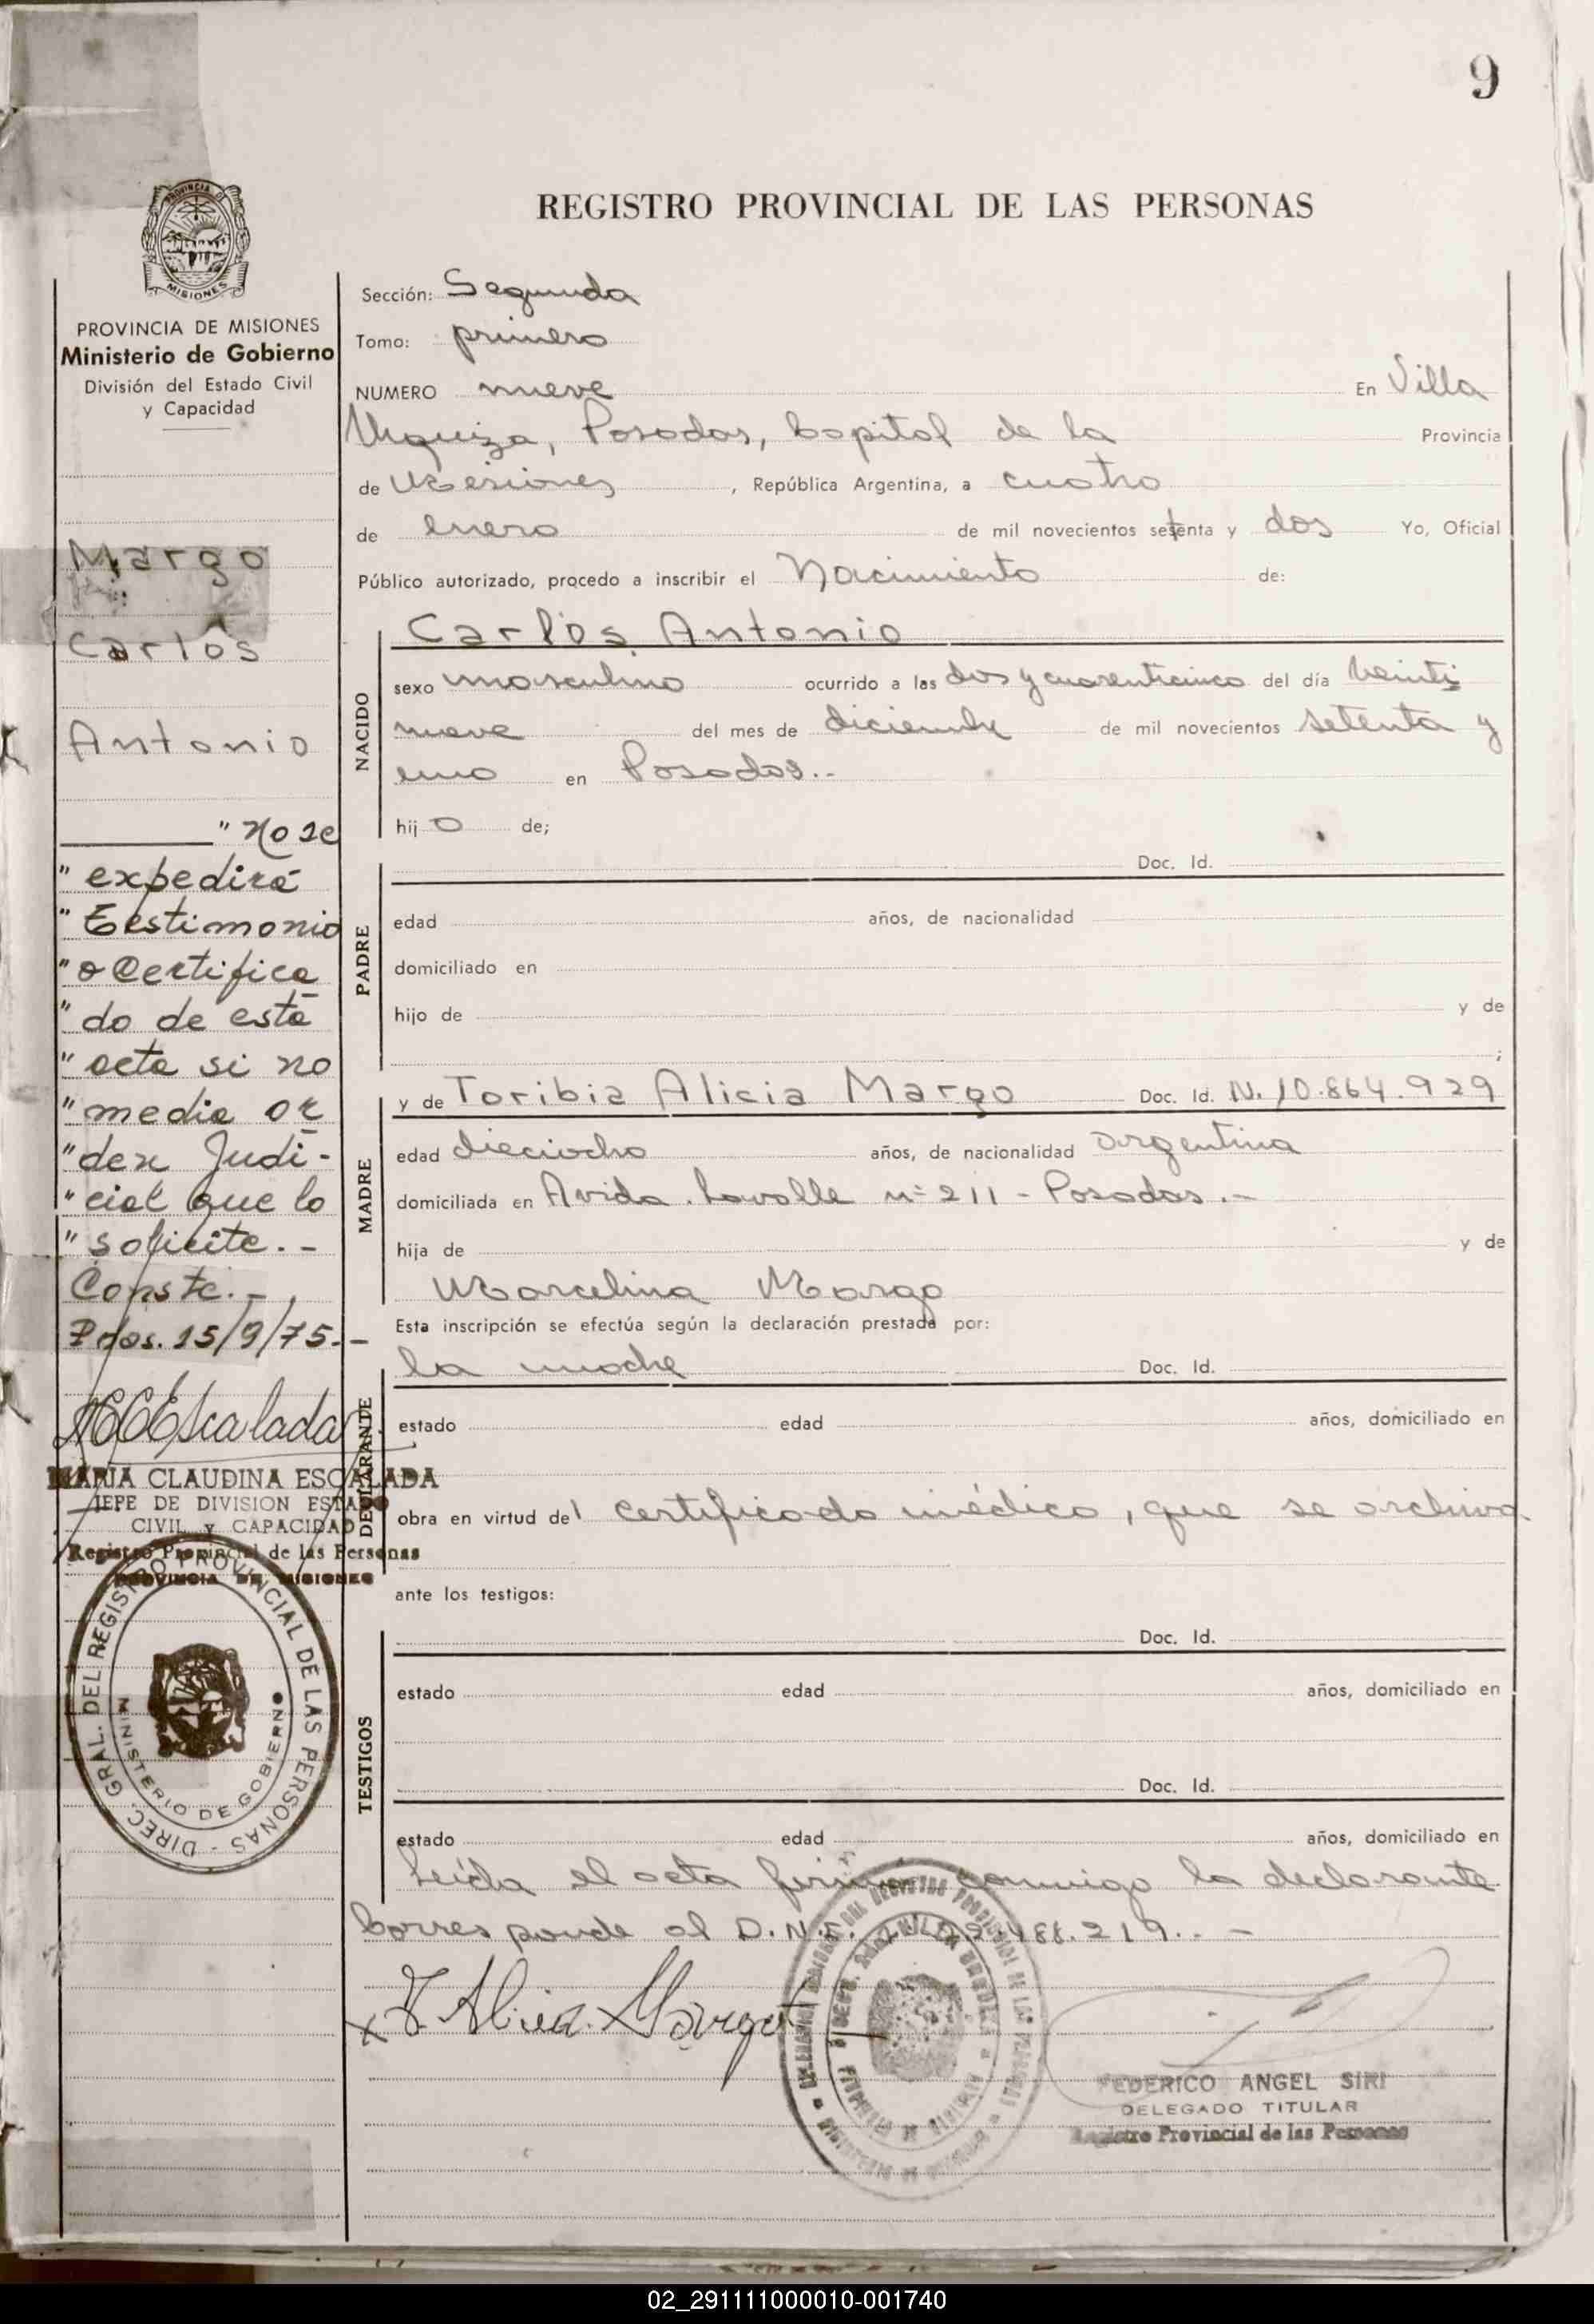 9
REGISTRO PROVINCIAL DE LAS PERSONAS
PROVINCIA DE MISIONES
Ministerio de Gobierno
División del Estado Civil
y Capacidad
Margo
Carlos
Antonio
" No se
" expedirá
" Testimonio
" o Certifica
" do de esta
" acta si no
" media or
" den Judi-
" cial que lo
" solicite.-
Conste.-
Pdas. 15/9/75.-
MCEscalada
MARIA CLAUDINA ESCALADA
JEFE DE DIVISION ESTADO
CIVIL y CAPACIDAD
Registro Provincial de las Personas
PROVINCIA DE MISIONES
DIREC. GRAL. DEL REGISTRO PROVINCIAL DE LAS PERSONAS -
MINISTERIO DE GOBIERNO
Sección: Segunda
Tomo: primero
NUMERO nueve En Villa
Urquiza, Posadas, Capital de la Provincia
de Misiones, República Argentina, a cuatro
de enero de mil novecientos setenta y dos Yo, Oficial
Público autorizado, procedo a inscribir el Nacimiento de:
NACIDO
Carlos Antonio
sexo masculino ocurrido a las dos y cuarenticinco del día veinti
nueve del mes de diciembre de mil novecientos setenta y
uno en Posadas.-
hijo de;
PADRE
Doc. Id.
edad años, de nacionalidad
domiciliado en
hijo de y de
;
MADRE
y de Toribia Alicia Margo Doc. Id. N. 10.864.929
edad dieciocho años, de nacionalidad argentina
domiciliada en Avida. Lavalle nº 211 - Posadas.-
hija de y de
Marcelina Margo
Esta inscripción se efectúa según la declaración prestada por:
DECLARANTE
la madre Doc. Id.
estado edad años, domiciliado en
obra en virtud del certificado médico, que se archiva
ante los testigos:
TESTIGOS
Doc. Id.
estado edad años, domiciliado en
Doc. Id.
estado edad años, domiciliado en
Leída el acta firma conmigo la declarante
Corresponde al D.N.I. 22.488.219..-
x T. Alicia Margot
FEDERICO ANGEL SIRI
DELEGADO TITULAR
Registro Provincial de las Personas
02_291111000010-001740